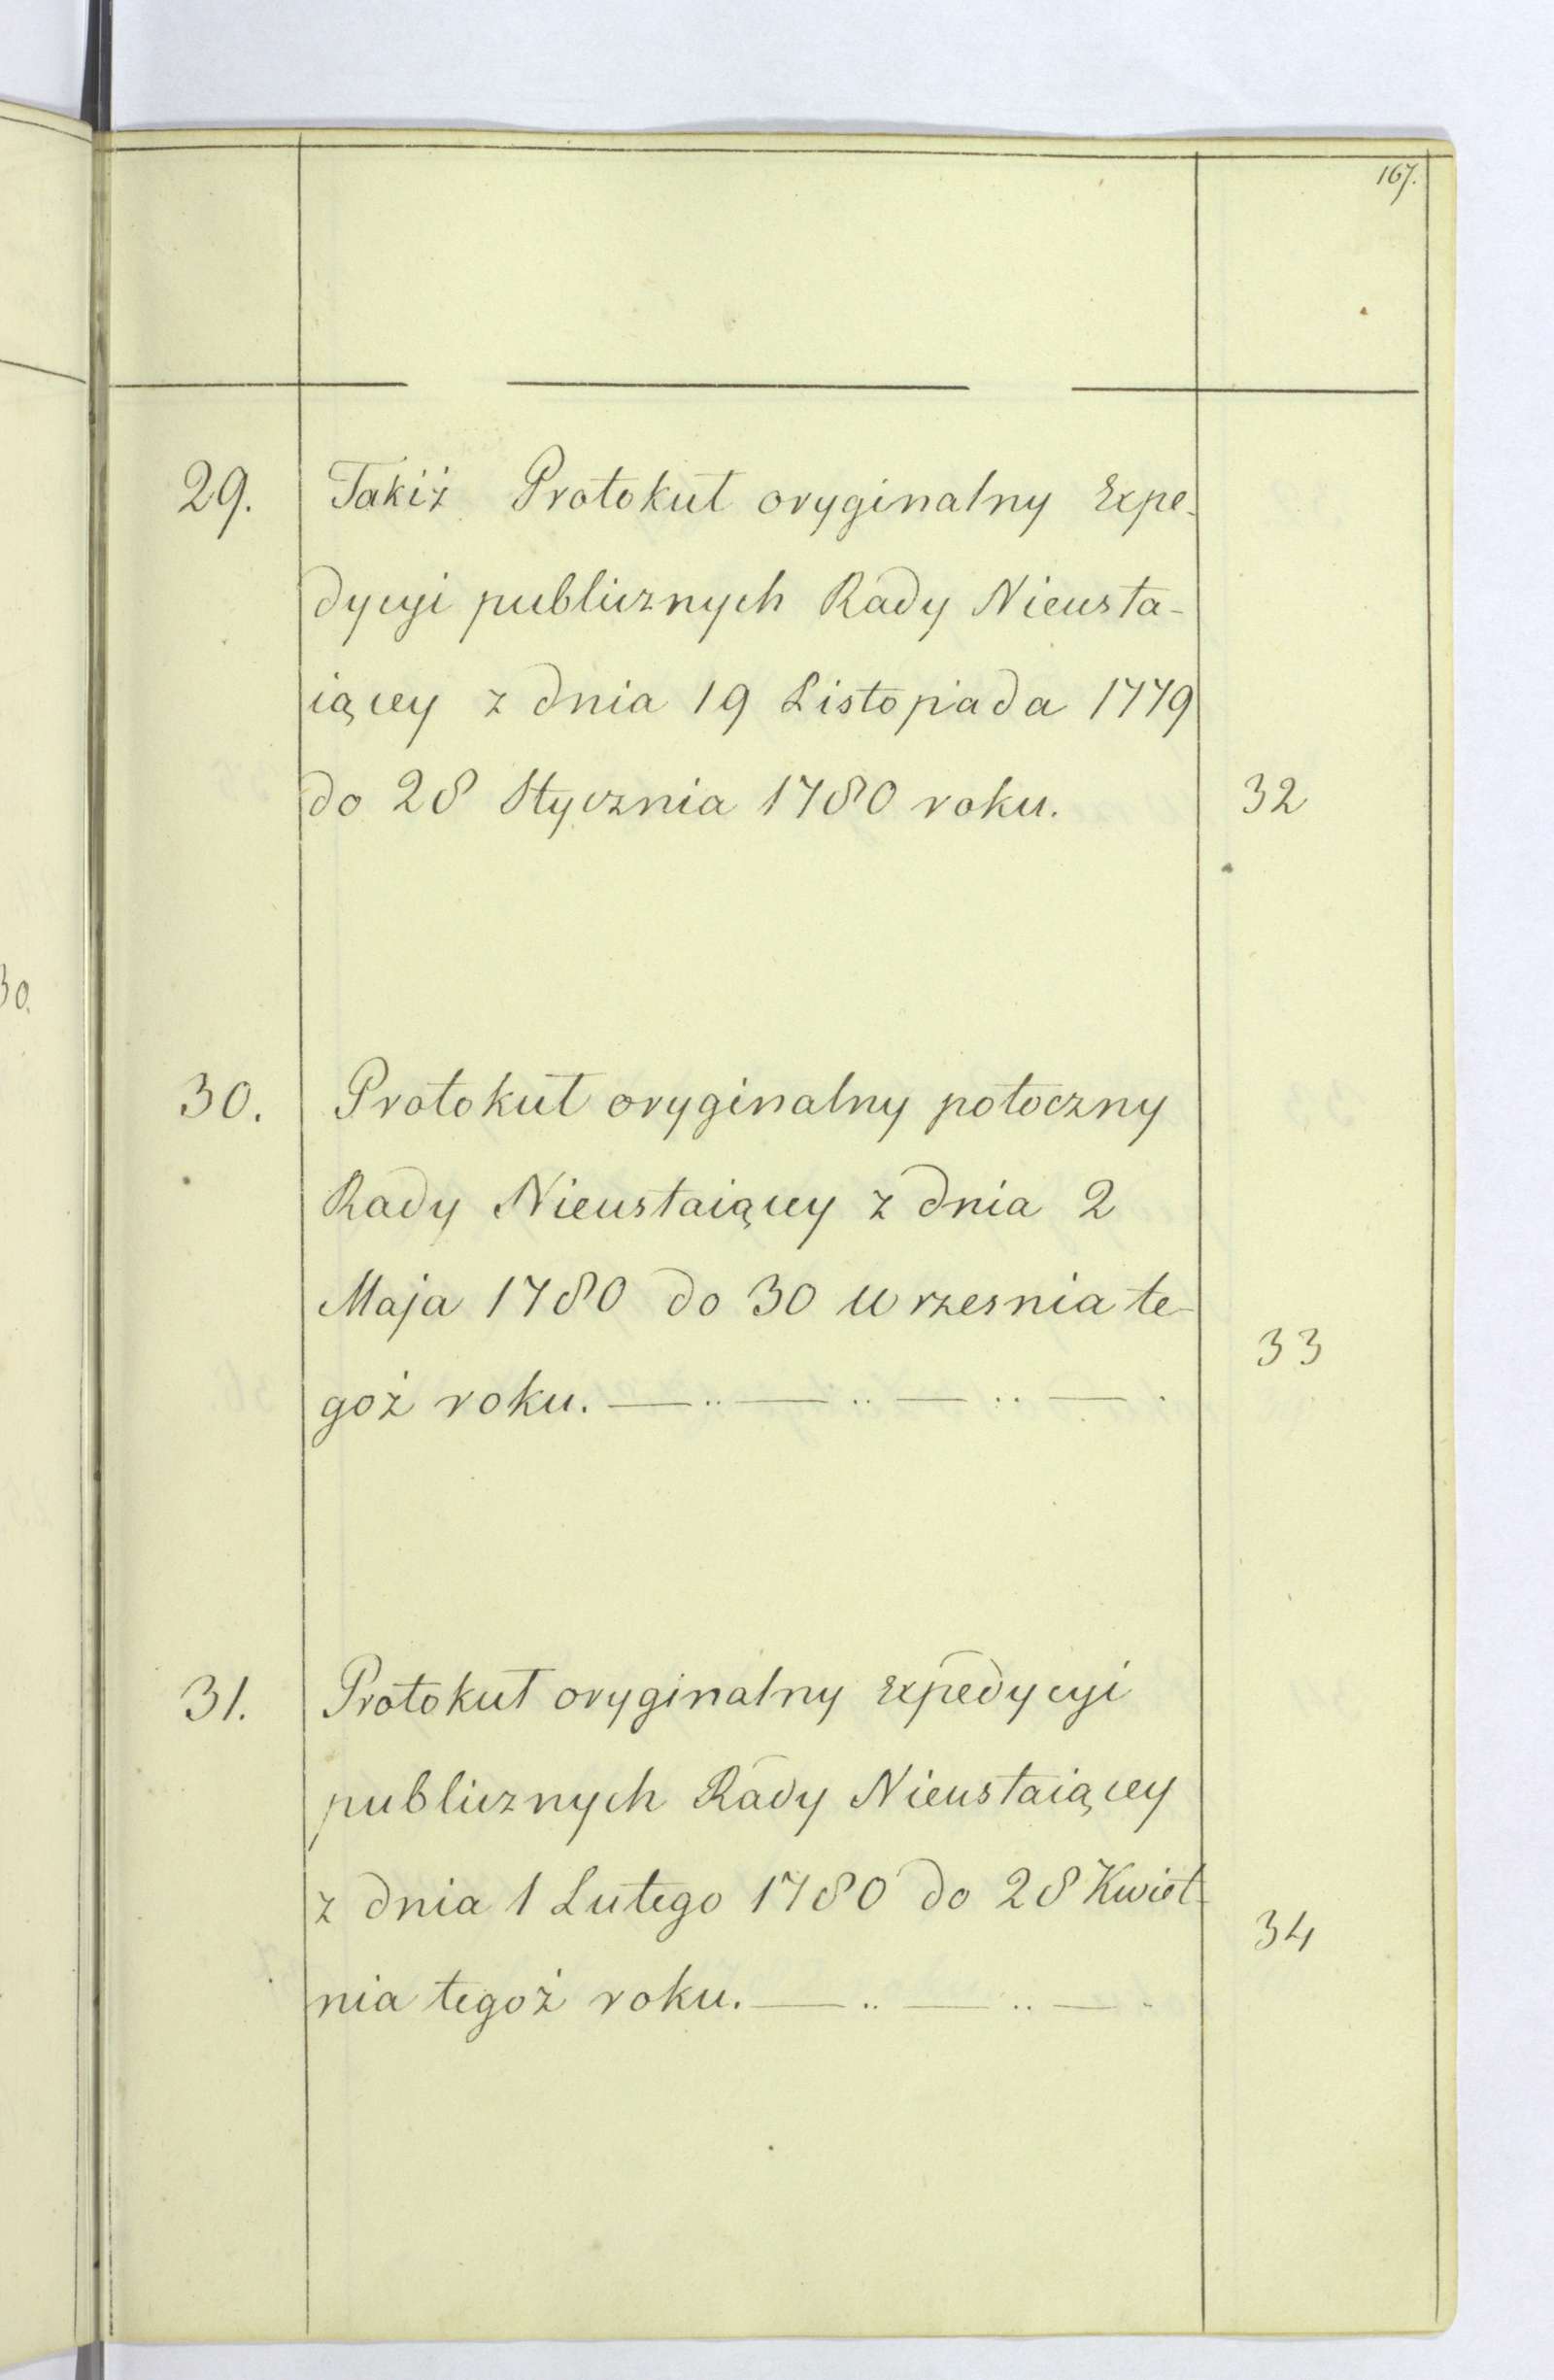 167.
29. Takiż Protokuł oryginalny Expe-
dycyi publicznych Rady Nieusta-
iącey z dnia 19 Listopada 1779
do 28 Stycznia 1780 roku. 32
30.
30. Protokuł oryginalny potoczny
Rady Nieustaiącey z dnia 2
Maja 1780 do 30 Wrzesnia te-
33
goż roku.
31. Protokuł oryginalny Expedycyi
publicznych Rady Nieustaiącey
z dnia 1 Lutego 1780 do 28 Kwiet-
34
nia tegoż roku.